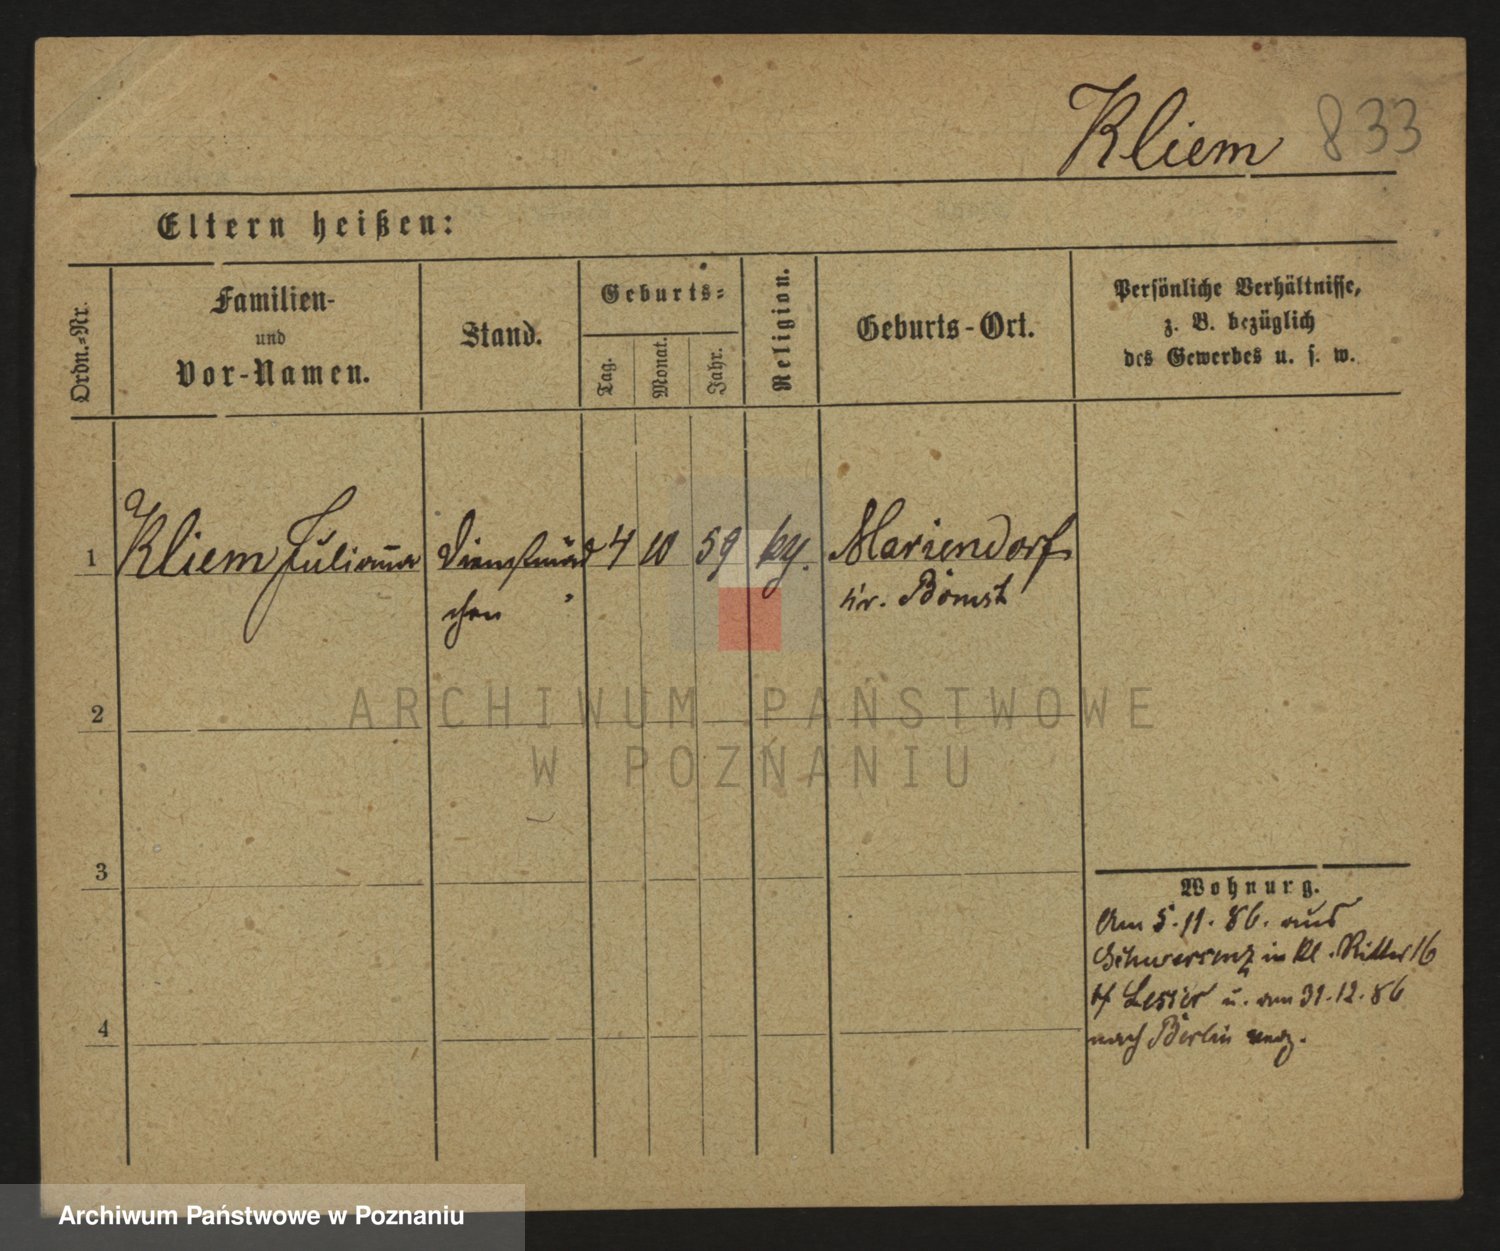 Kliem 833
Eltern heißen:
Ordn.-Nr.
Familien-
und
Vor-Namen.
Stand.
Geburts-
Tag.
Monat.
Jahr.
Religion.
Geburts-Ort.
Persönliche Verhältnisse,
z. B. bezüglich
des Gewerbes u. s. w.
1 Kliem Julianna Dienstmäd 4 10 59 Mariendorf
chen Kr. Bomst
2
3
4
Wohnung.
Am 5.11.86. aus
Schwersenz in Kl. Ritter 16
u. am 31.12.86
nach Berlin verz.
ARCHIWUM PAŃSTWOWE
W POZNANIU
Archiwum Państwowe w Poznaniu